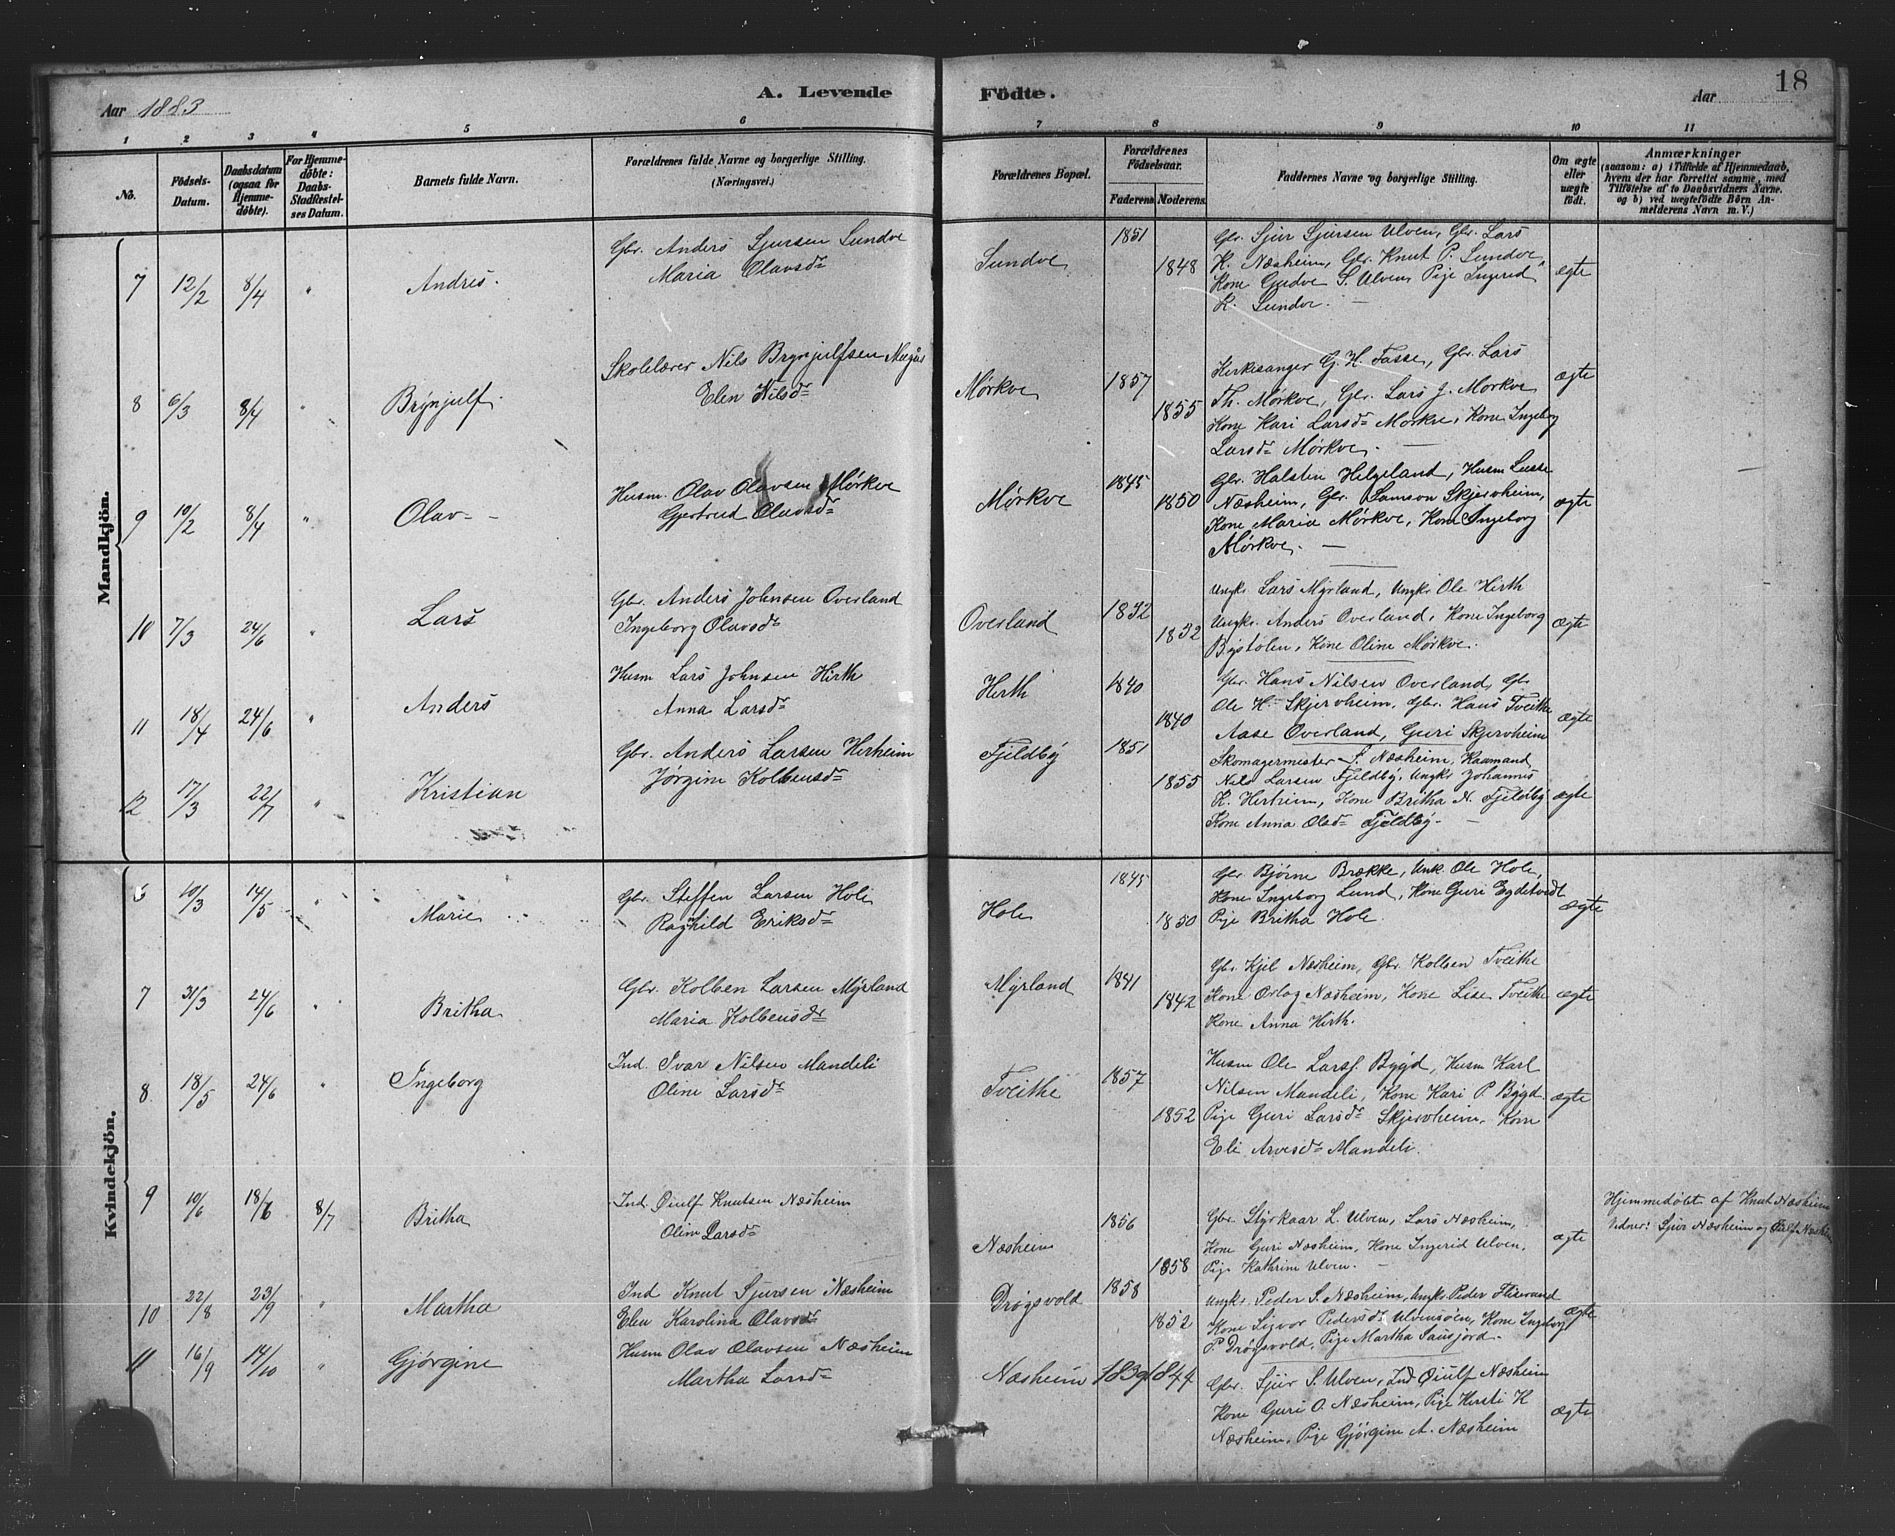 18
Aar 1883 A. Levende Födte. Aar
1 2 3 4 5 6 7 8 9 10 11
No. Födsels-Datum. Daabsdatum (ogsaa for Hjemmedöbte). For Hjemmedöbte: Daabs-Stadfæstelses Datum. Barnets fulde Navn. Forældrenes fulde Navne og borgerlige Stilling. (Næringsvei.) Forældrenes Bopæl. Forældrenes Födselsaar. Faderens Moderens. Faddernes Navne og borgerlige Stilling. Om ægte eller uægte födt. Anmærkninger (saasom: a) i Tilfælde af Hjemmedaab, hvem der har forrettet samme, med Tilföielse af to Daabsvidners Navne. og b) ved uægtefödte Börn Anmelderens Navn m. V.)
Mandkjön.
7 12/2 8/4 " Andres.
Gbr. Anders Sjursen Sundve
Maria Olavsdr
Sundve 1851 1848
Gbr. Sjur Sjursen Ulven, Gbr. Lars
K. Næsheim, Gbr. Knut P. Sundve,
Kone Gudve S. Ulven, Pige Ingerid
K. Sundve. —
ægte
8 6/3 8/4 " Brynjulf.
Skolelærer Nils Brynjulfsen
Elen Nilsdr
Mørkve 1857 1855
Kirkesanger G. H. Tasse, Gbr. Lars
Th. Mørkve, Gbr. Lars J. Mørkve,
Kone Kari Larsdr Mørkve, Kone Ingeborg
Larsdr Mørkve. —
ægte
9 10/2 8/4 " Olav - -
Husm. Olav Olavsen Mørkve
Gjertrud Olavsdr
Mørkve 1845 1850
Gbr. Halsten Helgeland, Husm Lasse
Næsheim, Gbr. Samson Skjervheim,
Kone Maria Mørkve, Kone Ingeborg
Mørkve. —
ægte
10 7/3 24/6 " Lars
Gbr. Anders Johnsen Overland
Ingeborg Olavsdr
Overland 1832 1832
Ungkr. Lars Myrland, Ungkr Ole Hirth
Ungkr. Anders Overland, Kone Ingeborg
Bystølen, Kone Oline Mørkve.
ægte
11 18/4 24/6 " Anders
Husm Lars Johnsen Hirth
Anna Larsdr
Hirth 1840 1840
Gbr. Hans Nilsen Overland, Gbr
Ole H. Skjervheim, Gbr. Hans Tveithe
Aase Overland, Guri Skjervheim
ægte
12 17/3 22/7 " Kristian
Gbr. Anders Larsen Herheim
Jørgine Kolbensdr
Fjeldby 1851 1855
Skomagermester S. Næsheim, Kaarmand
Nils Larsen Fjeldby, Ungkr Johannes
K. Herheim, Kone Britha N. Fjeldby
Kone Anna Olsdr Fjeldby. —
ægte
Kvindekjön.
6 10/3 14/5 " Marie
Gbr. Steffen Larsen Hole
Raghild Eriksdr
Hole 1845 1850
Gbr Bjørne Brække, Unk. Ole Hole,
Kone Ingeborg Lund, Kone Guri Egdetvedt
Pige Britha Hole.
ægte
7 31/3 24/6 " Britha
Gbr. Kolben Larsen Myrland
Maria Kolbensdr
Myrland 1841 1842
Gbr. Kjel Næsheim, Gbr. Kolben Tveithe
Kone Orlog Næsheim, Kone Lise Tveithe
Kone Anna Hirth.
ægte
8 18/5 24/6 " Ingeborg
Ind. Ivar Nilsen Mandeli
Oline Larsdr
Tveithe 1857 1852
Husm Ole Larss. Bygd, Husm Karl
Nilsen Mandeli, Kone Kari P. Bygd.
Pige Guri Larsdr Skjervheim, Kone
Eli Arvesdr Mandeli.
ægte
9 10/6 18/7 8/7 Britha
Ind. Øiulf Knutsen Næsheim
Oline Larsdr
Næsheim 1856 1858
Gbr. Styrkaar L. Ulven, Lars Næsheim,
Kone Guri Næsheim, Kone Ingerid Ulven,
Pige Kathrine Ulven. —
ægte
Hjemmedøbt af Knut Næsheim
Vidner: Sjur Næsheim og Øiulf Næsheim
10 22/8 23/9 " Martha
Ind Knut Sjursen Næsheim
Elen Karolina Olavsdr
Drøgsvold 1858 1852
Ungkr. Peder S. Næsheim, Ungkr Peder
Kone Sigvor Pedersdr Ulvensøen, Kone Ingeborg
P. Drøgsvold, Pige Martha
ægte
11 16/9 14/10 " Gjørgine
Husm Olav Olavsen Næsheim
Martha Larsdr
Næsheim 1839 1844
Gbr. Sjur S. Ulven, Ind Øiulf Næsheim
Kone Guri O. Næsheim, Pige Hersti K
Næsheim, Pige Gjørgine A. Næsheim
ægte